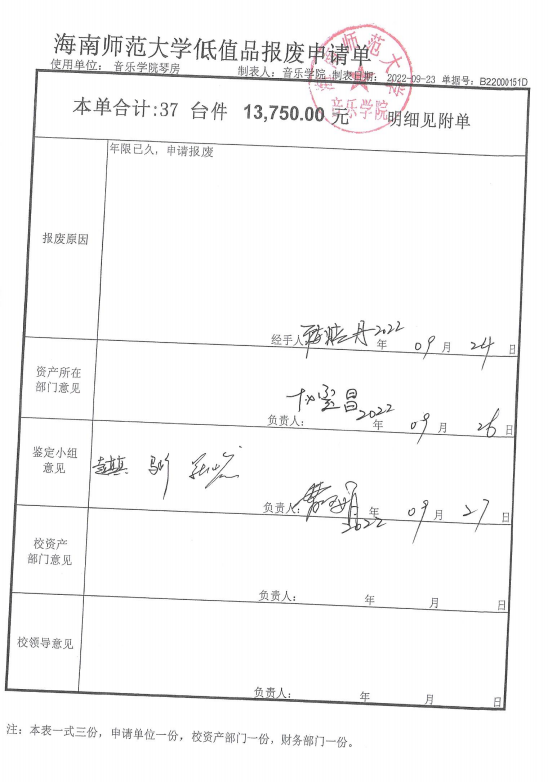 海南师范大学低值品报废申请单
使用单位： 音乐学院琴房 制表人：音乐学院 制表日期： 2022-09-23 单据号：B22000151D
本单合计:37 台件 13,750.00 元 明细见附单
音乐学院
年限已久，申请报废
报废原因
经手人 2022 年 09 月 24 日
资产所在
部门意见
负责人： 2022 年 09 月 26 日
鉴定小组
意见
负责人： 2022 年 09 月 27 日
校资产
部门意见
负责人： 年 月 日
校领导意见
负责人： 年 月 日
注：本表一式三份，申请单位一份，校资产部门一份，财务部门一份。